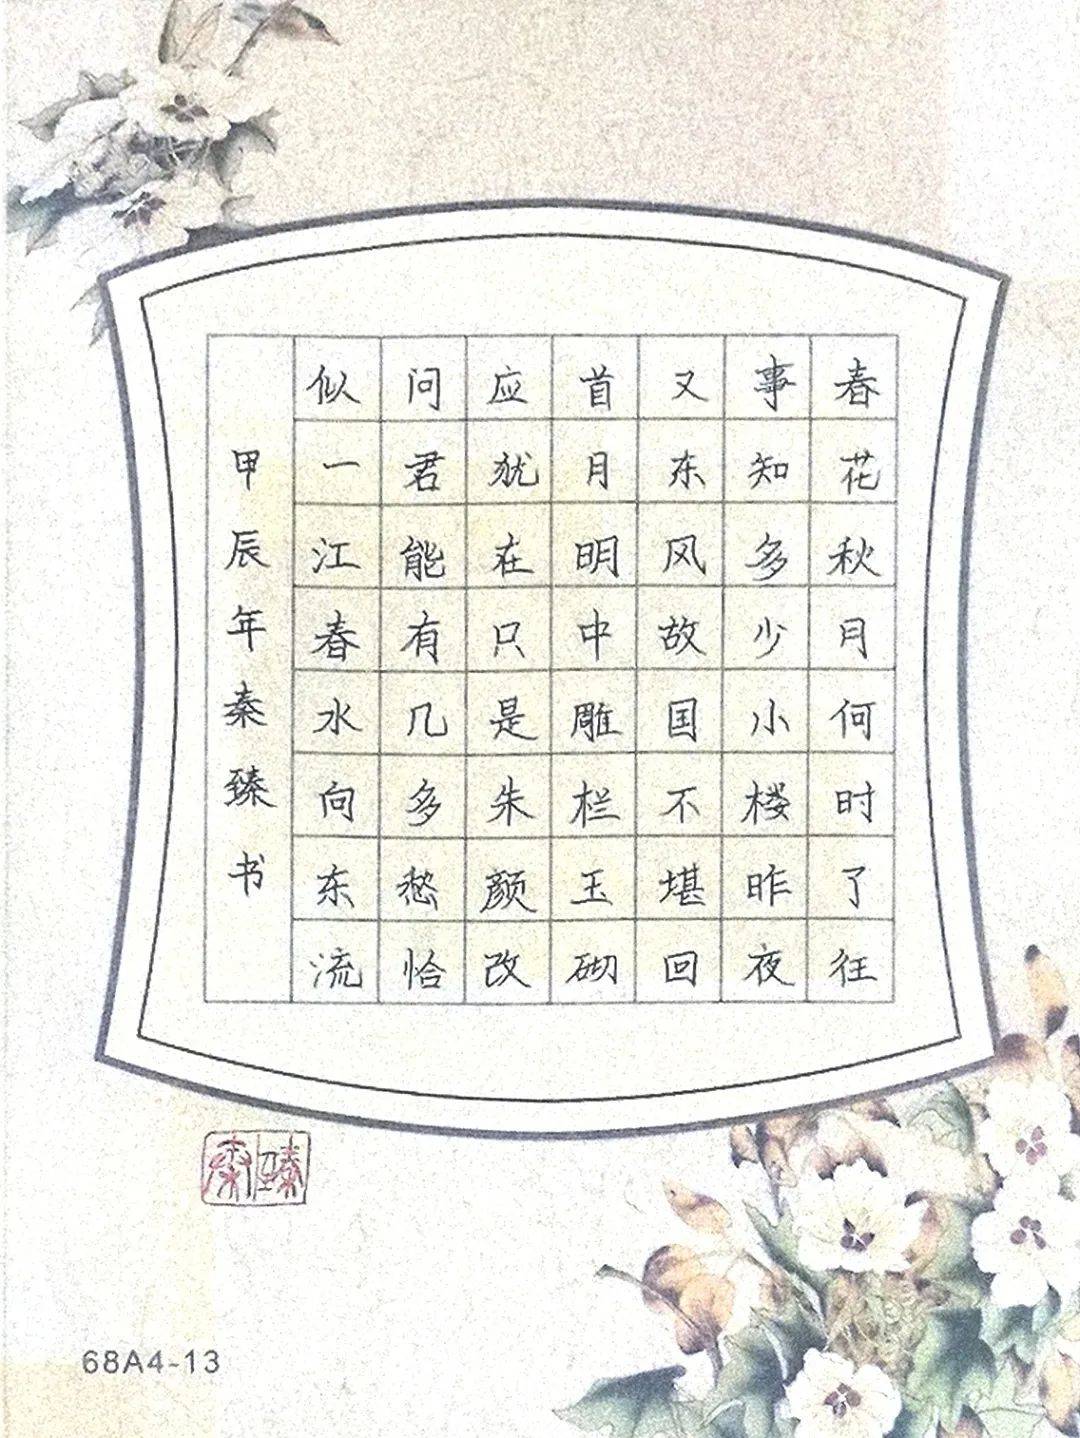 春花秋月何时了往
事知多少小楼昨夜
又东风故国不堪回
首月明中雕栏玉砌
应犹在只是朱颜改
问君能有几多愁恰
似一江春水向东流
甲辰年秦臻书
秦臻
68A4-13